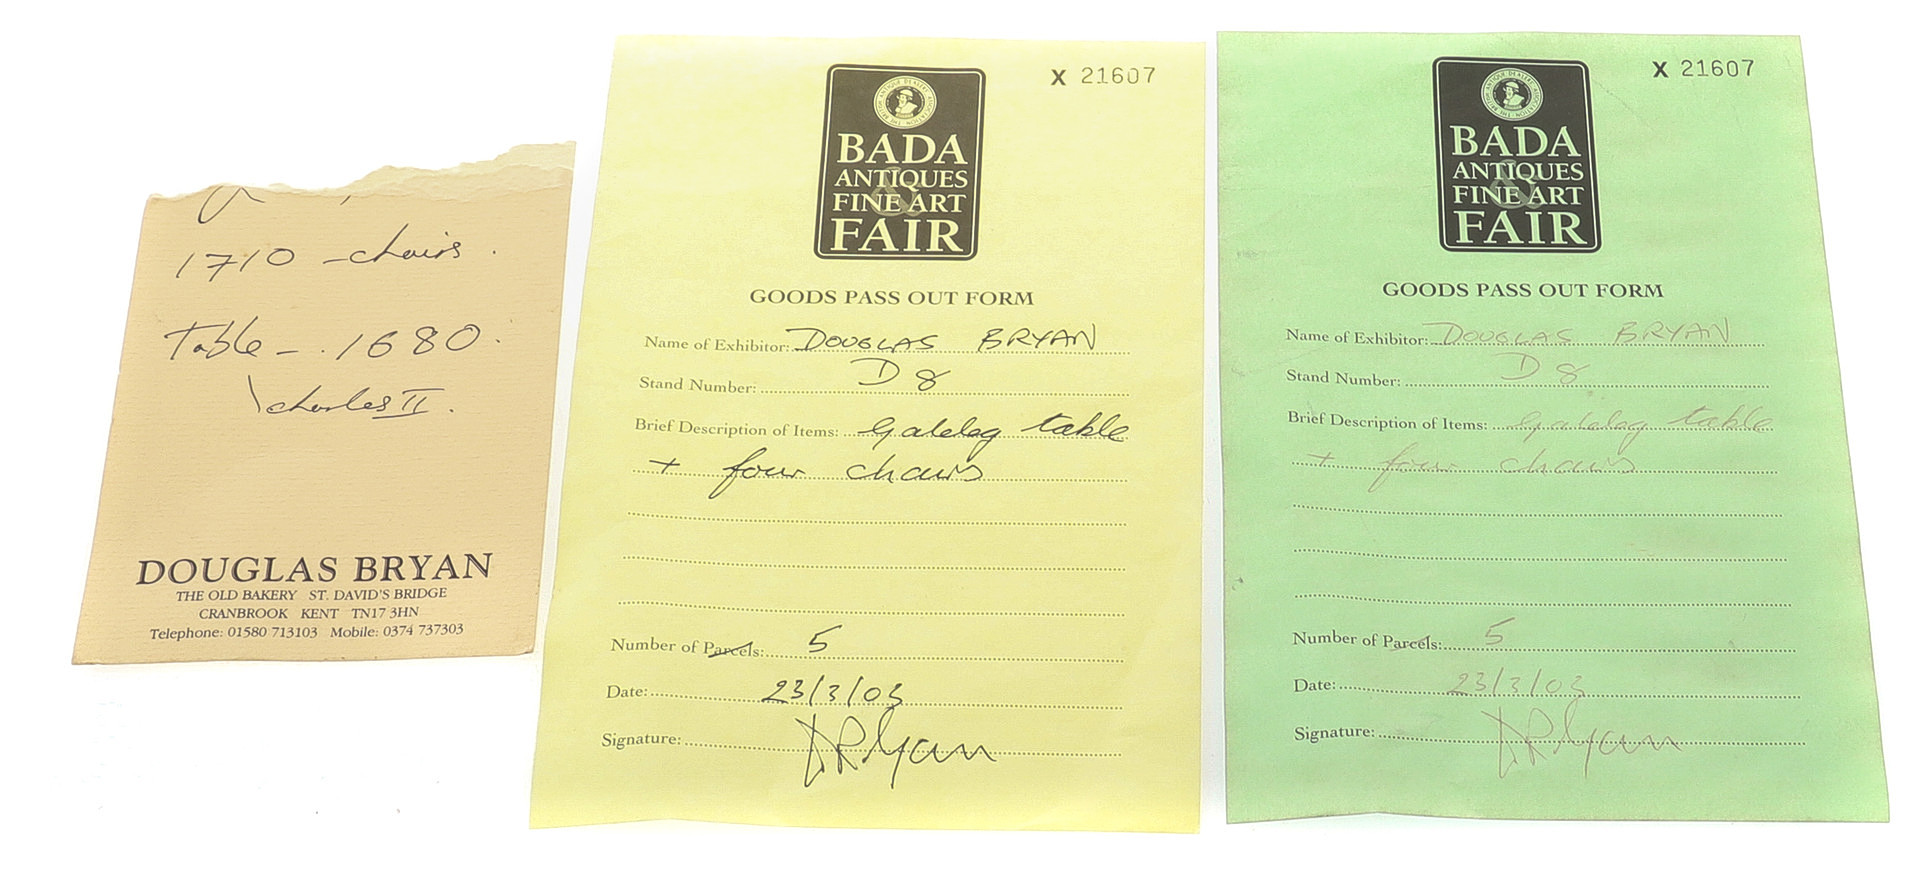 1710 - chairs.
Table - . 1680.
\ Charles II.
DOUGLAS BRYAN
THE OLD BAKERY ST. DAVID'S BRIDGE
CRANBROOK KENT TN17 3HN
Telephone: 01580 713103 Mobile: 0374 737303
X 21607
THE BRITISH ANTIQUE DEALERS' ASSOCIATION
BADA
ANTIQUES
&
FINE ART
FAIR
GOODS PASS OUT FORM
Name of Exhibitor: DOUGLAS BRYAN
Stand Number: D 8
Brief Description of Items: Gateleg table
+ four chairs
Number of Parcels: 5
Date: 23/3/03
Signature: DRBryan
X 21607
THE BRITISH ANTIQUE DEALERS' ASSOCIATION
BADA
ANTIQUES
&
FINE ART
FAIR
GOODS PASS OUT FORM
Name of Exhibitor: DOUGLAS BRYAN
Stand Number: D 8
Brief Description of Items: Gateleg table
+ four chairs
Number of Parcels: 5
Date: 23/3/03
Signature: DRBryan